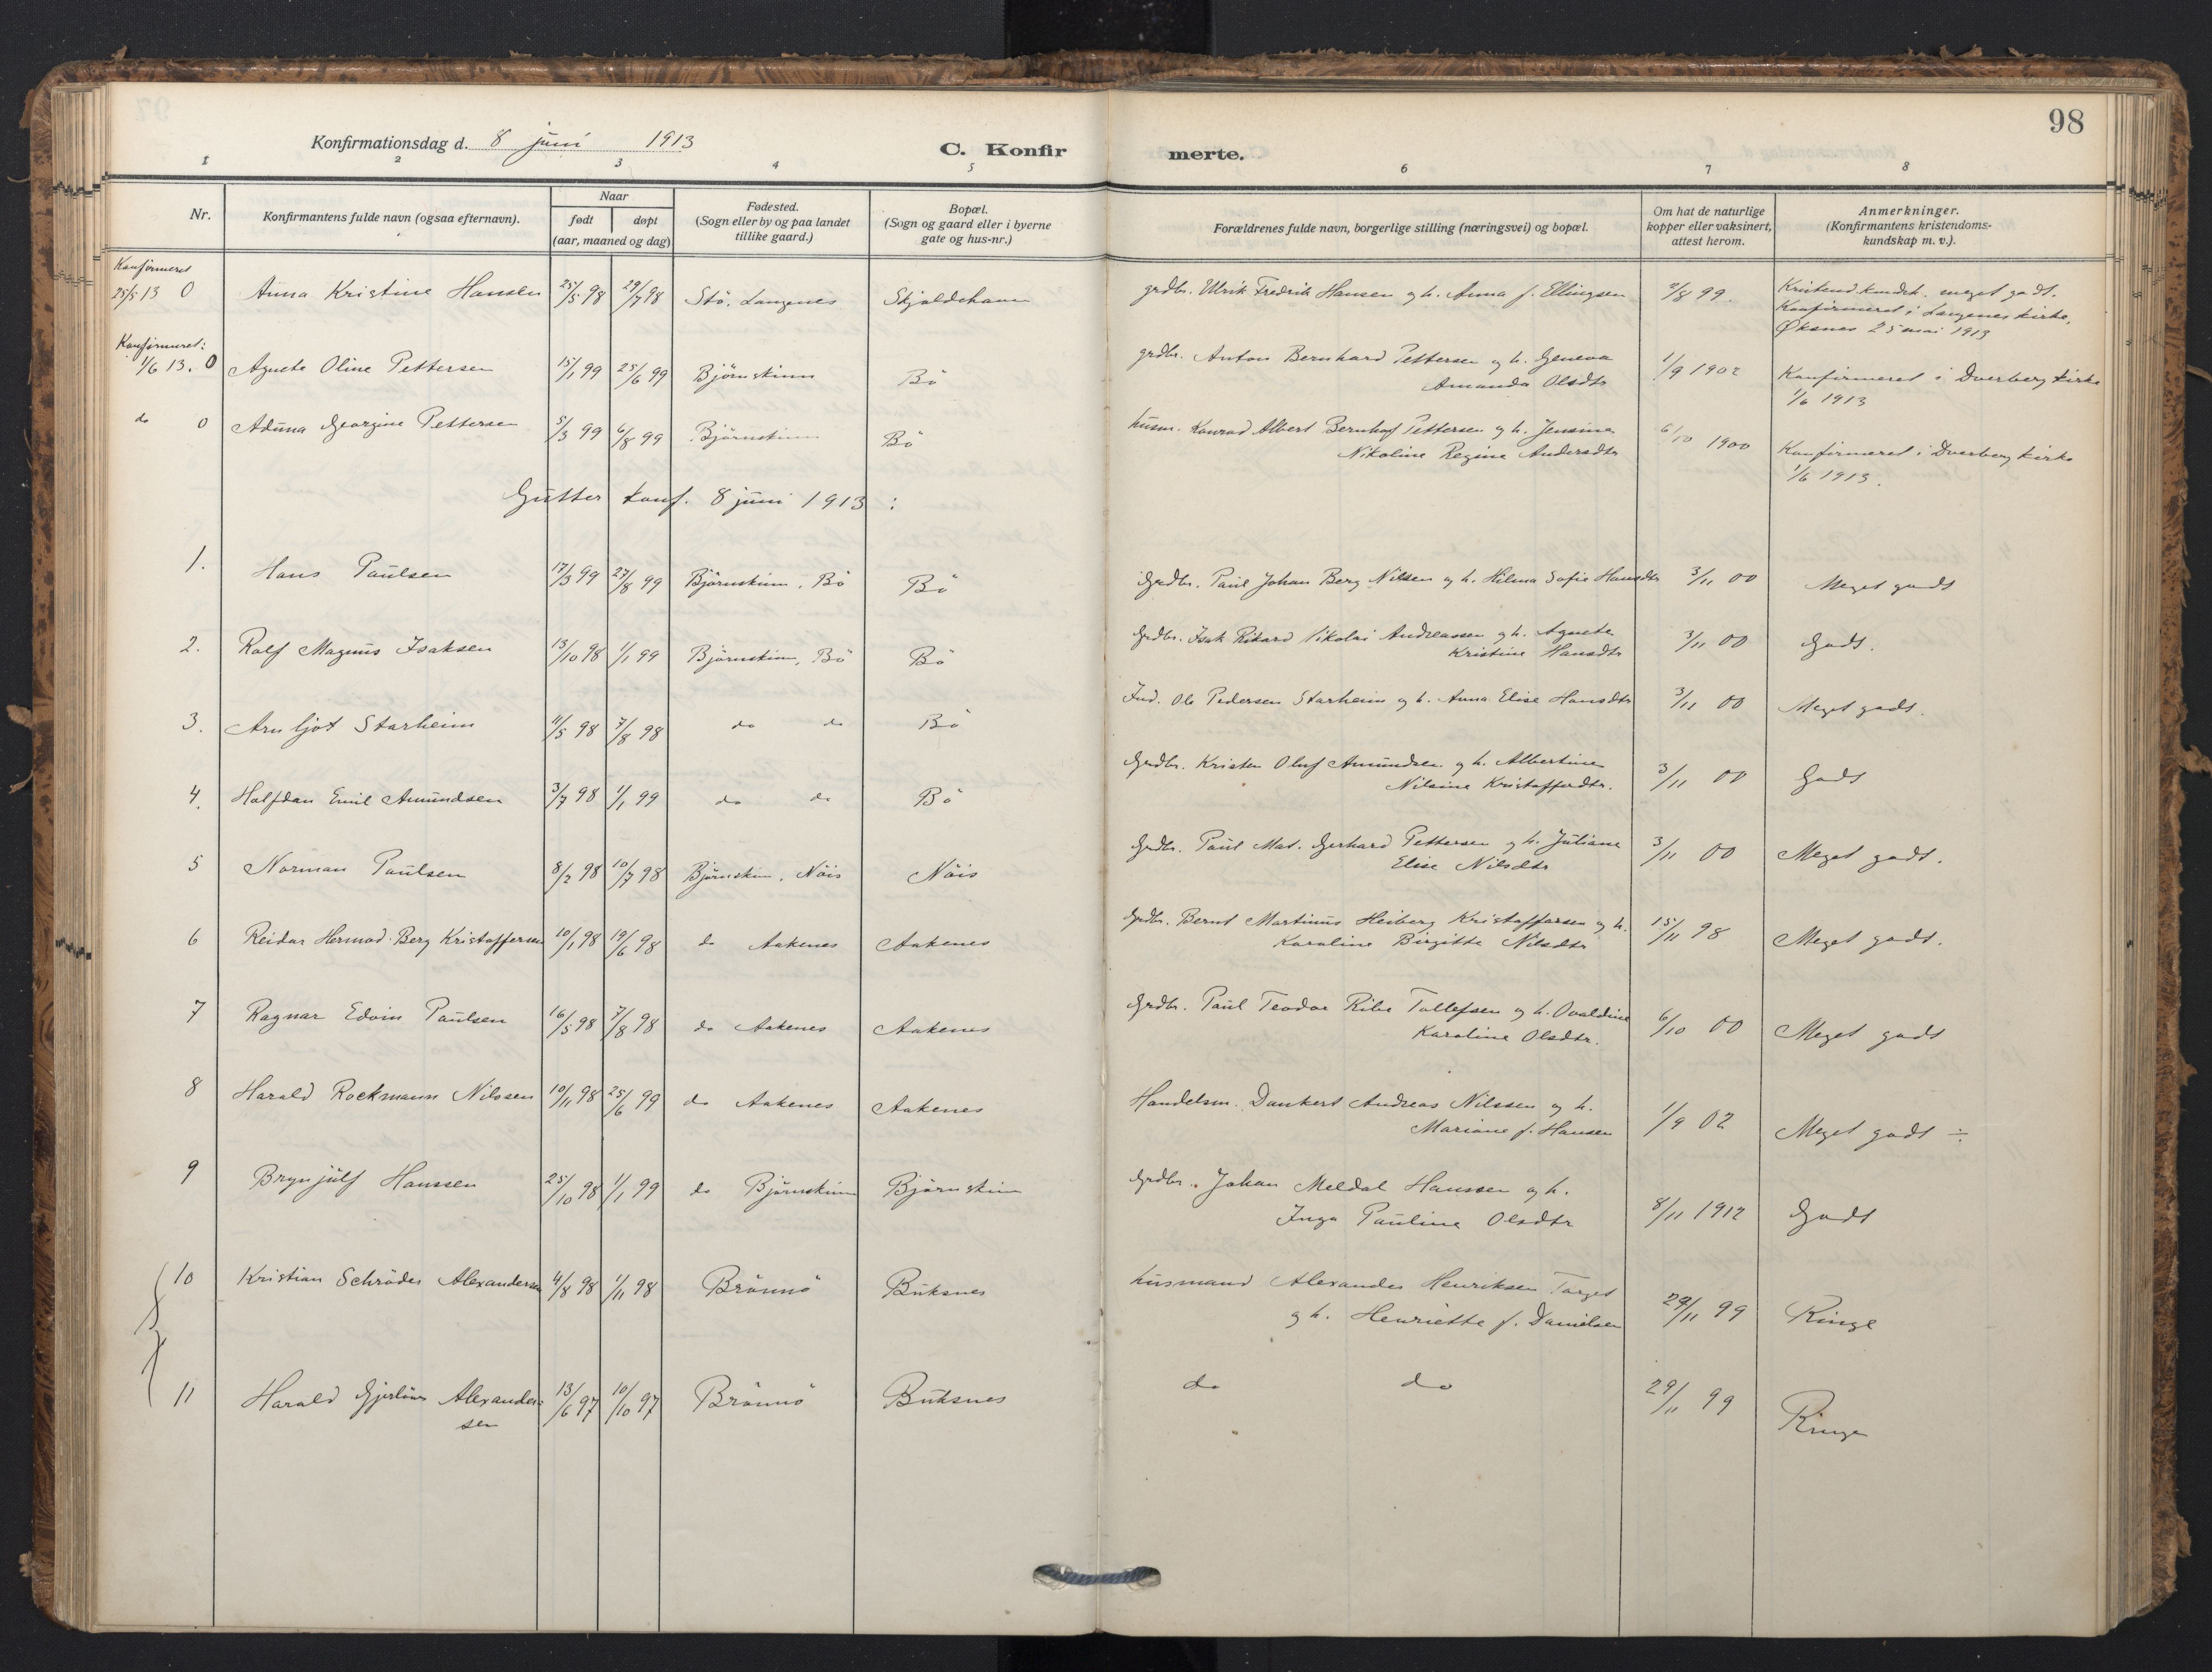 98
Konfirmationsdag d. 8 juni 1913
C. Konfirmerte.
1 2 3 4 5 6 7 8
Nr. Konfirmantens fulde navn (ogsaa efternavn). Naar født døpt (aar, maaned og dag) Fødested. (Sogn eller by og paa landet tillike gaard.) Bopæl. (Sogn og gaard eller i byerne gate og hus-nr.) Forældrenes fulde navn, borgerlige stilling (næringsvei) og bopæl. Om hat de naturlige kopper eller vaksinert, attest herom. Anmerkninger. (Konfirmantens kristendoms-kundskap m. v.).
Konfirmeret
25/5 13 0 Anna Kristine Hansen 25/5 98 29/7 98 Stö, Langenes Skjoldehavn grdbr. Ulrik Fredrik Hansen og h. Anna f. Ellingsen 2/8 99. Kristend.kundsk. meget godt.
Konfirmeret i Langenes kirke,
Øksnes 25 mai 1913
Konfirmeret:
1/6 13. 0 Agnete Oline Pettersen 15/1 99 25/6 99 Björnskinn Bö grdbr. Anton Bernhard Pettersen og h. Geneva
Amanda Olsdtr 1/9 1902 Konfirmeret i Dverberg kirke
1/6 1913
do 0 Aduna Georgine Pettersen 5/3 99 6/8 99 Björnskinn Bö husm. Konrad Albert Bernhof Pettersen og h. Jensine
Nikoline Regine Andersdtr 6/10 1900 Konfirmeret i Dverberg kirke
1/6 1913.
Gutter konf. 8 juni 1913 :
1. Hans Paulsen 17/3 99 27/8 99 Björnskinn, Bö Bö Grdbr. Paul Johan Berg Nilsen og h. Hilma Sofie Hansdtr 3/11 00 Meget godt
2. Rolf Magnus Isaksen 13/10 98 1/1 99 Björnskinn, Bö Bö Grdbr. Isak Rikard Nikolai Andreassen og h. Agnete
Kristine Hansdtr 3/11 00 Godt.
3. Arnljot Starheim 11/5 98 7/8 98 do do Bö Ind. Ole Pedersen Starheim og h. Anna Elise Hansdtr 3/11 00 Meget godt.
4. Halfdan Emil Amundsen 3/7 98 1/1 99 do do Bö Grdbr. Kristen Oluf Amundsen og h. Albertine
Nilsine Kristofferdtr. 3/11 00 Godt
5 Norman Paulsen 8/2 98 10/7 98 Björnskinn, Nöis Nöis Grdbr. Paul Mat. Gerhard Pettersen og h. Juliane
Elise Nilsdtr 3/11 00 Meget godt.
6 Reidar Hermod Berg Kristoffersen 10/1 98 19/6 98 do Aakenes Aakenes Grdbr. Bernt Martinus Heiberg Kristoffersen og h.
Karoline Birgitte Nilsdtr 15/11 98 Meget godt.
7 Ragnar Edvin Paulsen 16/5 98 7/8 98 do Aakenes Aakenes Grdbr. Paul Teodor Ribe Tollefsen og h. Ovaldine
Karoline Olsdtr. 6/10 00 Meget godt
8 Harald Rockmann Nilssen 10/11 98 25/6 99 do Aakenes Aakenes Handelsm. Dankert Andreas Nilssen og h.
Mariane f. Hansen 1/9 02 Meget godt ÷
9 Brynjulf Hanssen 25/10 98 1/1 99 do Björnskinn Björnskinn Grdbr. Johan Meldal Hanssen og h.
Inga Pauline Olsdtr 8/11 1912 Godt
10 Kristian Schröder Alexandersen 4/8 98 1/11 98 Brönnö Buksnes husmand Alexander Henriksen Torget
og h. Henriette f. Danielsen 29/11 99 Ringe
11 Harald Alexander-
sen 13/6 97 10/10 97 Brönnö Buksnes do do 29/11 99 Ringe